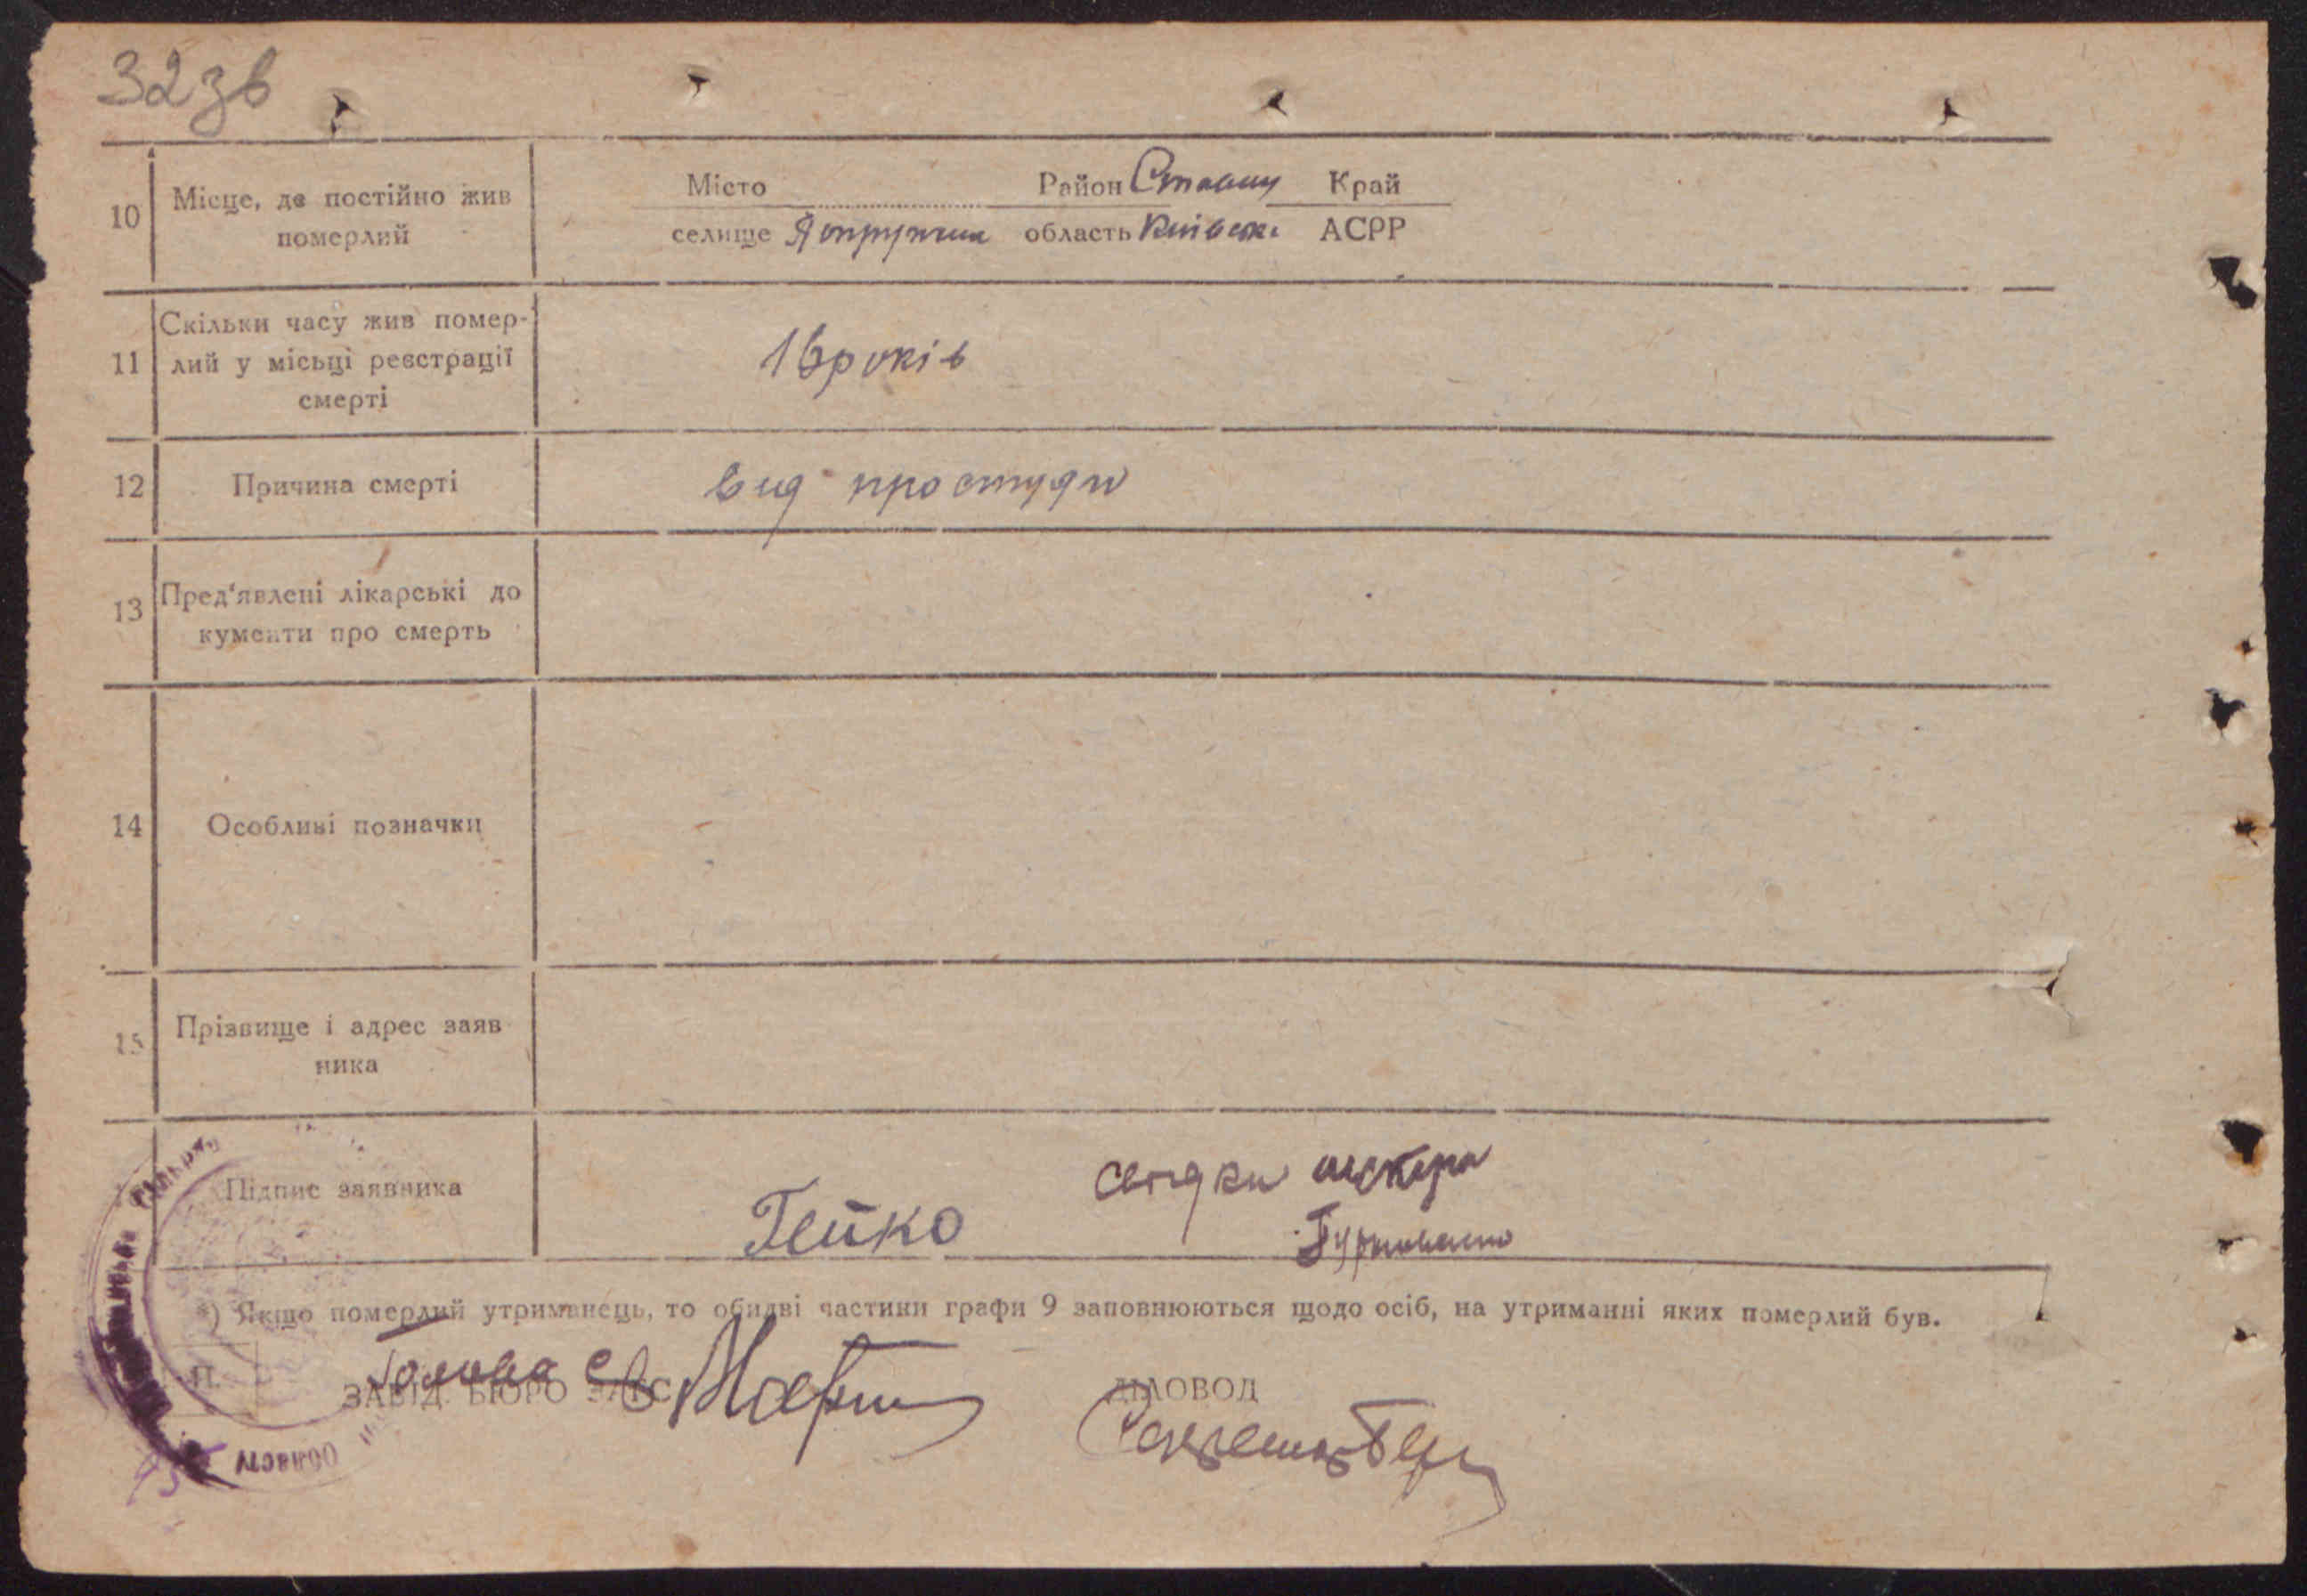 32зв
10 Місце, де постійно жив померлий
Місто Район Край
селище область Київськ АСРР
11 Скільки часу жив помер-
лий у місьці реєстрації
смерті
16років
12 Причина смерті вид простуди
13 Пред'явлені лікарські до
кументи про смерть
14 Особливі позначки
15 Прізвище і адрес заяв
ника
Підпис заявника
Гейко
свідки
*) Якщо померлий утриманець, то обидві частини графи 9 заповнюються щодо осіб, на утриманні яких померлий був.
П.
Голова
ЗАВІД. БЮРО ЗАГС
ДІЛОВОД
Области